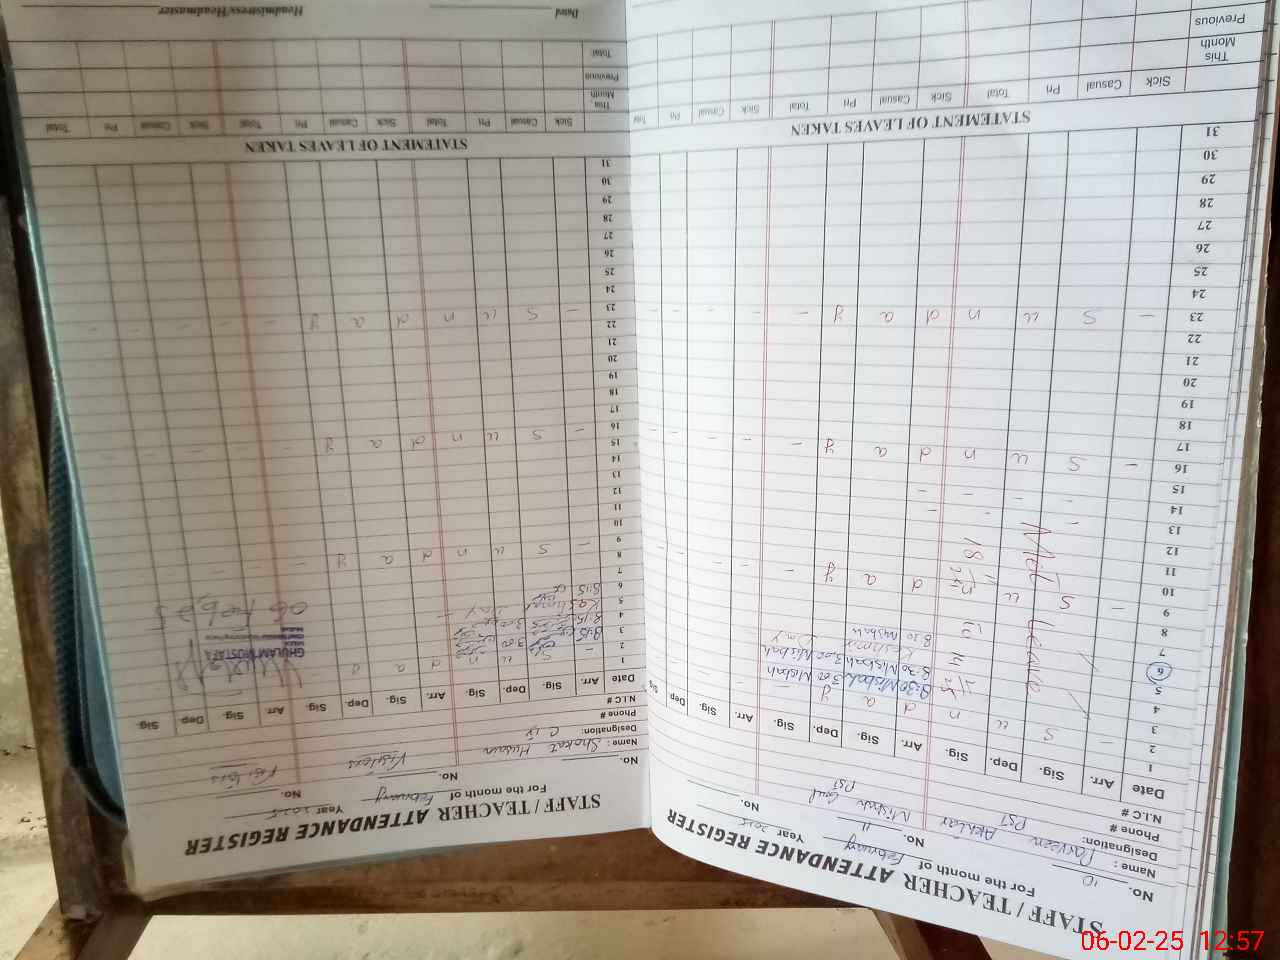 STAFF / TEACHER ATTENDANCE REGISTER
For the month of February Year 2025
No. 10 No. 11 No.
Name : Parveen Akhtar Misbah Gul
Designation: PST PST
Phone #
N.I.C #
Date Arr. Sig. Dep. Sig. Arr. Sig. Dep. Sig. Arr. Sig. Dep. Sig.
1
2 - S u n d a y - -
3 8:30 Misbah 3:00 Misbah
4 8:30 Misbah 3:00 Misbah
5 Kashmir Day
6 8:30 Misbah
7
8
9 - S u n d a y - - - - -
10
11
12
13
14
15
16 - S u n d a y - - - - -
17
18
19
20
21
22
23 - S u n d a y - - - - -
24
25
26
27
28
29
30
31
Leave
STATEMENT OF LEAVES TAKEN
Sick Casual Pri Total Sick Casual Pri Total Sick Casual Pri Total
This Month
Previous
STAFF / TEACHER ATTENDANCE REGISTER
For the month of February Year 2025
No. No. No.
Name : Shokat Husain Visitors Visitors
Designation:
Phone #
N.I.C #
Date Arr. Sig. Dep. Sig. Arr. Sig. Dep. Sig. Arr. Sig. Dep. Sig.
1
2 - S u n d a y
3 8:15 3:00
4 8:15 3:00
5 Kashmir Day
6 8:15
7
8
9 - S u n d a y
10
11
12
13
14
15
16 - S u n d a y - - - - -
17
18
19
20
21
22
23 - S u n d a y - - - - -
24
25
26
27
28
29
30
31
GHULAM MUSTAFA
06 Feb, 25
STATEMENT OF LEAVES TAKEN
Sick Casual Pri Total Sick Casual Pri Total Sick Casual Pri Total
This Month
Previous
Total
Dated Headmistress/Headmaster
06-02-25 12:57